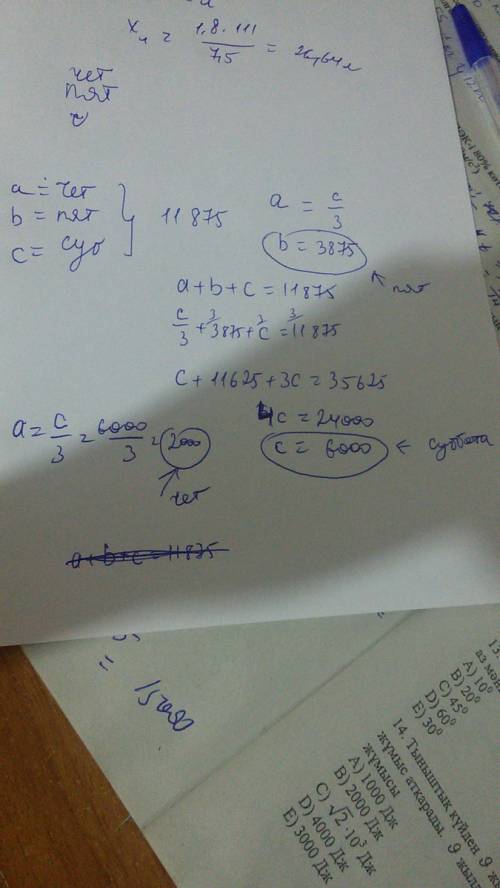 x₄ = 1,8 · 111 / 7,5 = 26,64 л
чет
пят
с
a = чет
b = пят
c = суб
} 11 875
a = c/3
b = 3875 ← пят
a + b + c = 11875
c/3 + 3875 + c = 11875
c + 11625 + 3c = 35625
4c = 24000
c = 6000 ← суббота
a = c/3 = 6000/3 = 2000
чет
a + b + c = 11875
= 15000
13.
аз мән
A) 10°
B) 20°
C) 45°
D) 60°
E) 30°
14. Тыныштық күйден 9
жұмыс атқарады. 9 жыл
жұмысы
A) 1000 Дж
B) 2000 Дж
C) √2·10³ Дж
D) 4000 Дж
E) 3000 Дж